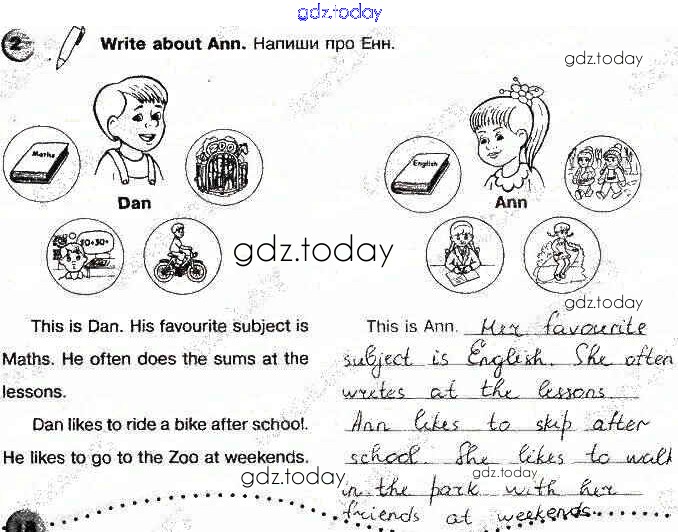 gdz.today
2 Write about Ann. Напиши про Енн.
gdz.today
Maths
English
Dan
Ann
10+30=
gdz.today
gdz.today
This is Dan. His favourite subject is
Maths. He often does the sums at the
lessons.
Dan likes to ride a bike after school.
He likes to go to the Zoo at weekends.
This is Ann. Her favourite
subject is English. She often
writes at the lessons.
Ann likes to skip after
school. She likes to walk
in the park with her
friends at weekends.
gdz.today
gdz.today